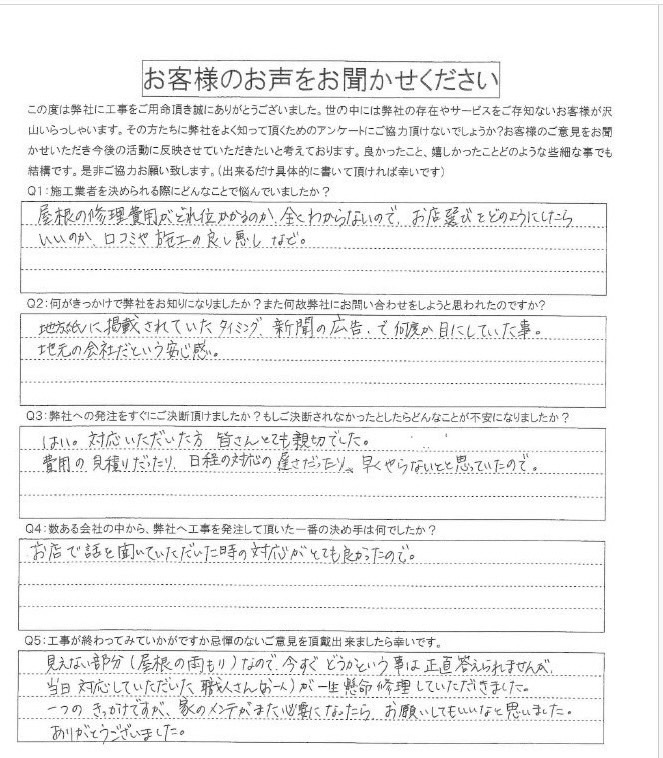 お客様のお声をお聞かせください
この度は弊社に工事をご用命頂き誠にありがとうございました。世の中には弊社の存在やサービスをご存知ないお客様が沢
山いらっしゃいます。その方たちに弊社をよく知って頂くためのアンケートにご協力頂けないでしょうか?お客様のご意見をお聞
かせいただき今後の活動に反映させていただきたいと考えております。良かったこと、嬉しかったことどのような些細な事でも
結構です。是非ご協力お願い致します。(出来るだけ具体的に書いて頂ければ幸いです)
Q1:施工業者を決められる際にどんなことで悩んでいましたか?
屋根の修理費用がどれ位かかるのか、全くわからないので、お店選びをどのようにしたら
いいのか、口コミや施工の良し悪しなど。
Q2:何がきっかけで弊社をお知りになりましたか?また何故弊社にお問い合わせをしようと思われたのですか?
地方紙に掲載されていたタイミング、新聞の広告、で何度か目にしていた事。
地元の会社だという安心感。
Q3:弊社への発注をすぐにご決断頂けましたか?もしご決断されなかったとしたらどんなことが不安になりましたか?
はい。対応いただいた方 皆さんとても親切でした。
費用の見積りだったり、日程の対応の早さだったり、早くやらないとと思っていたので。
Q4:数ある会社の中から、弊社へ工事を発注して頂いた一番の決め手は何でしたか?
お店で話を聞いていただいた時の対応がとても良かったので。
Q5:工事が終わってみていかがですか忌憚のないご意見を頂戴出来ましたら幸いです。
見えない部分(屋根の雨もり)なので、今すぐどうかという事は正直答えられませんが、
当日対応していただいた職人さん(お一人)が一生懸命修理していただきました。
一つのきっかけですが、家のメンテがまた必要になったら、お願いしてもいいなと思いました。
ありがとうございました。